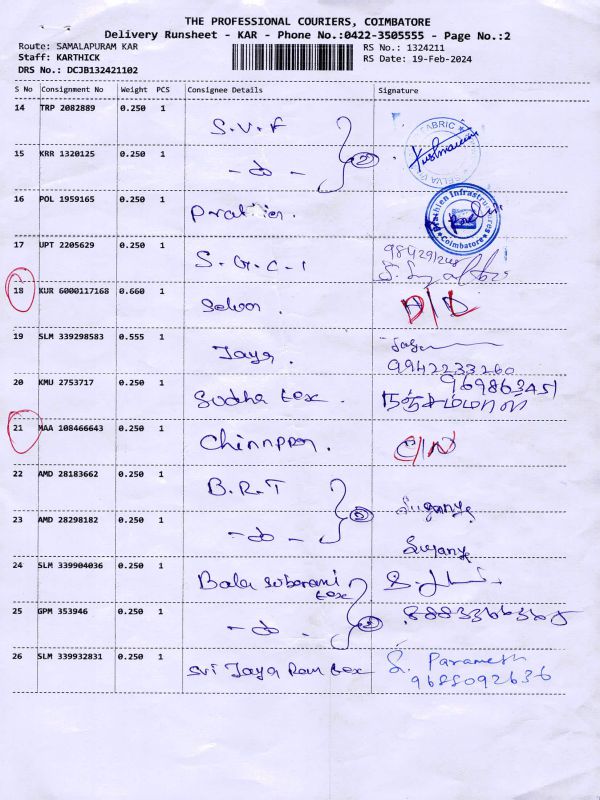 THE PROFESSIONAL COURIERS, COIMBATORE
Delivery Runsheet - KAR - Phone No.:0422-3505555 - Page No.:2
Route: SAMALAPURAM KAR
RS No.: 1324211
Staff: KARTHICK
RS Date: 19-Feb-2024
DRS No.: DCJB132421102
S No Consignment No Weight PCS Consignee Details Signature
14 TRP 2082889 0.250 1 S.V.F
15 KRR 1320125 0.250 1 - do - 2
16 POL 1959165 0.250 1
Coimbatore
17 UPT 2205629 0.250 1 S.G.C.I
18 KUR 6000117168 0.660 1 Selvar. D/L
19 SLM 339298583 0.555 1 Jaya. Jaya
9942233260
20 KMU 2753717 0.250 1 Sudha tex.
21 MAA 108466643 0.250 1 C/N
22 AMD 28183662 0.250 1 B.R.T Suganya
23 AMD 28298182 0.250 1 - do - Suganya
24 SLM 339904036 0.250 1 Bala subarani tex
25 GPM 353946 0.250 1 - do. 2
26 SLM 339932831 0.250 1 Sri Jaya Ram tex S. Paramesh
9688092636